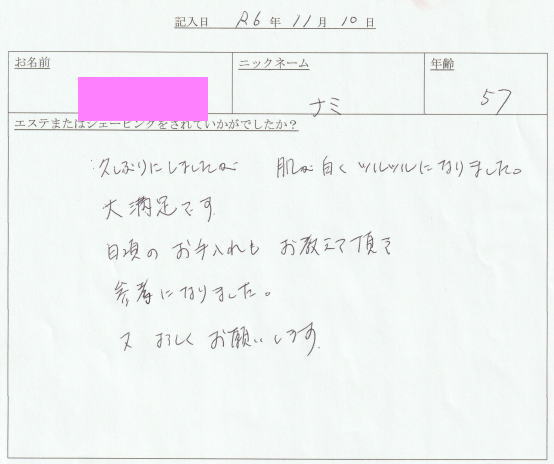 記入日 R6 年 11 月 10 日
お名前 ニックネーム 年齢
ナミ 57
エステまたはシェービングをされていかがでしたか?
久しぶりにしましたが 肌が白くツルツルになりました。
大満足です
日頃の お手入れも お教えて頂き
参考になりました。
又 よろしく お願いします。